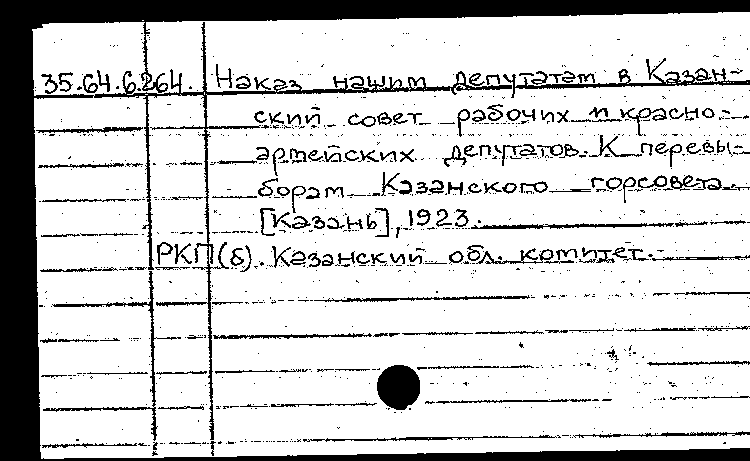 35.64.6.264. Наказ нашим депутатам в Казан-
ский совет рабочих и красно-
армейских депутатов. К перевы-
борам Казанского горсовета.
[Казань], 1923.
РКП(б). Казанский обл. комитет.